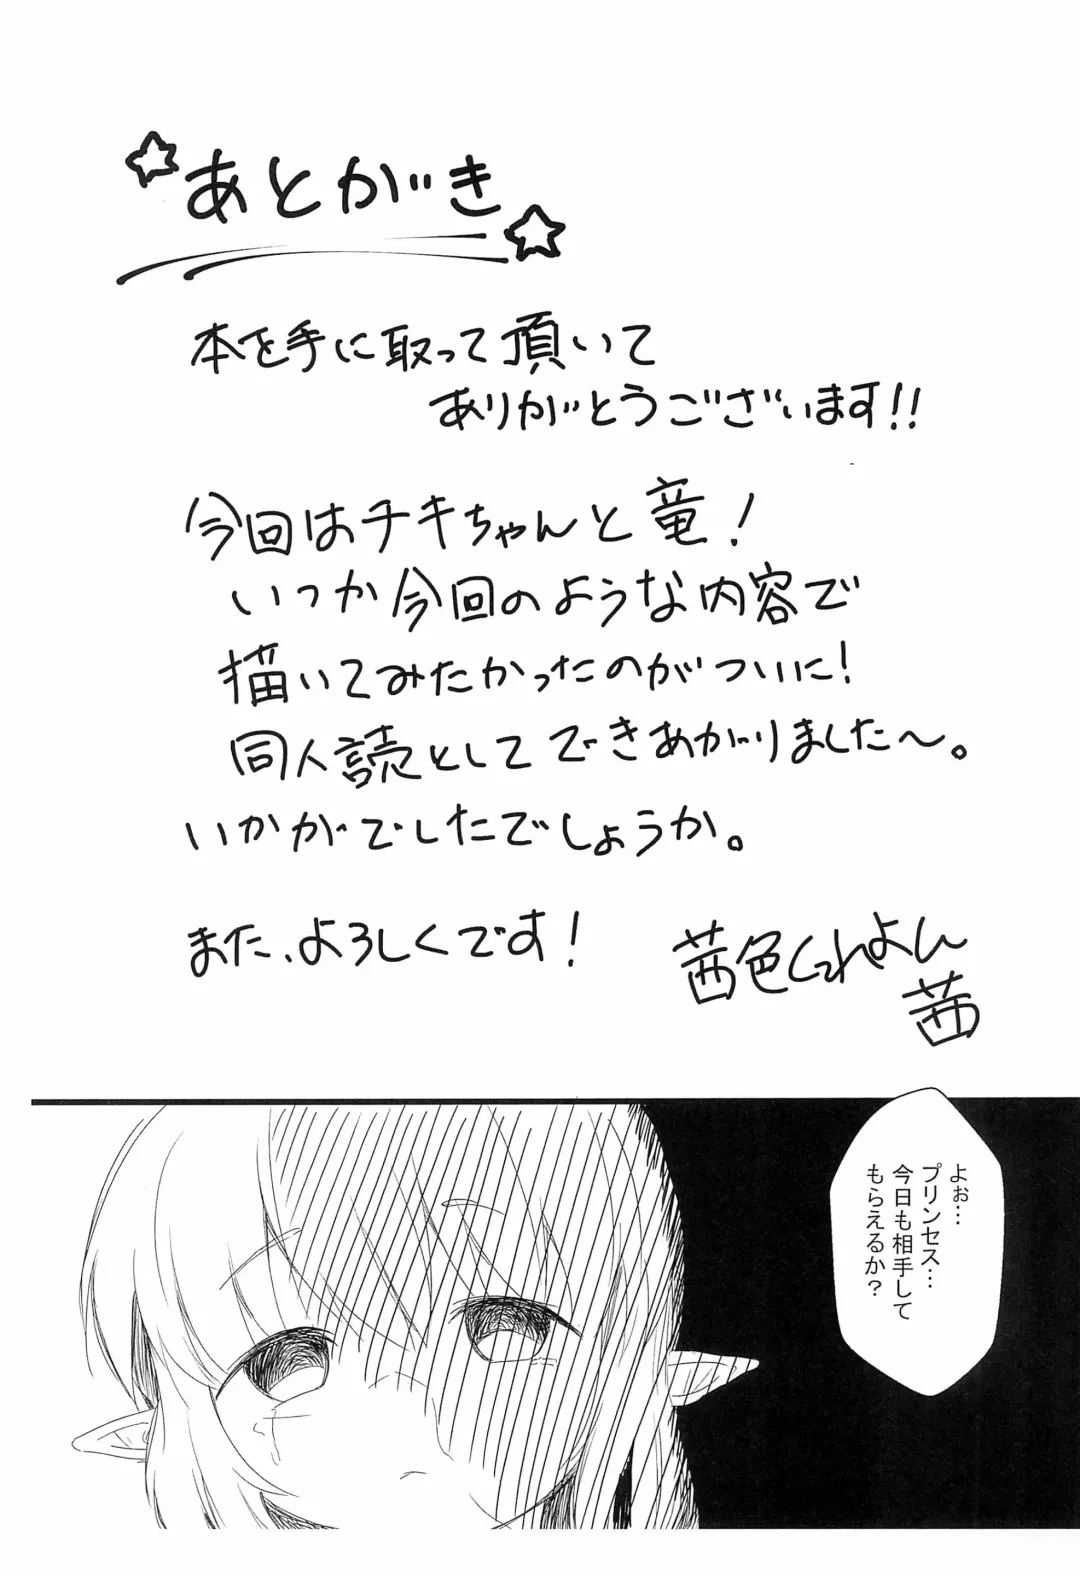 あとがき
本を手に取って頂いて
ありがとうございます!!
今回はチキちゃんと竜!
いつか今回のような内容で
描いてみたかったのがついに!
同人読としてできあがりました～。
いかがでしたでしょうか。
また、よろしくです!
茜色くれよん
茜
よぉ…
プリンセス…
今日も相手して
もらえるか?